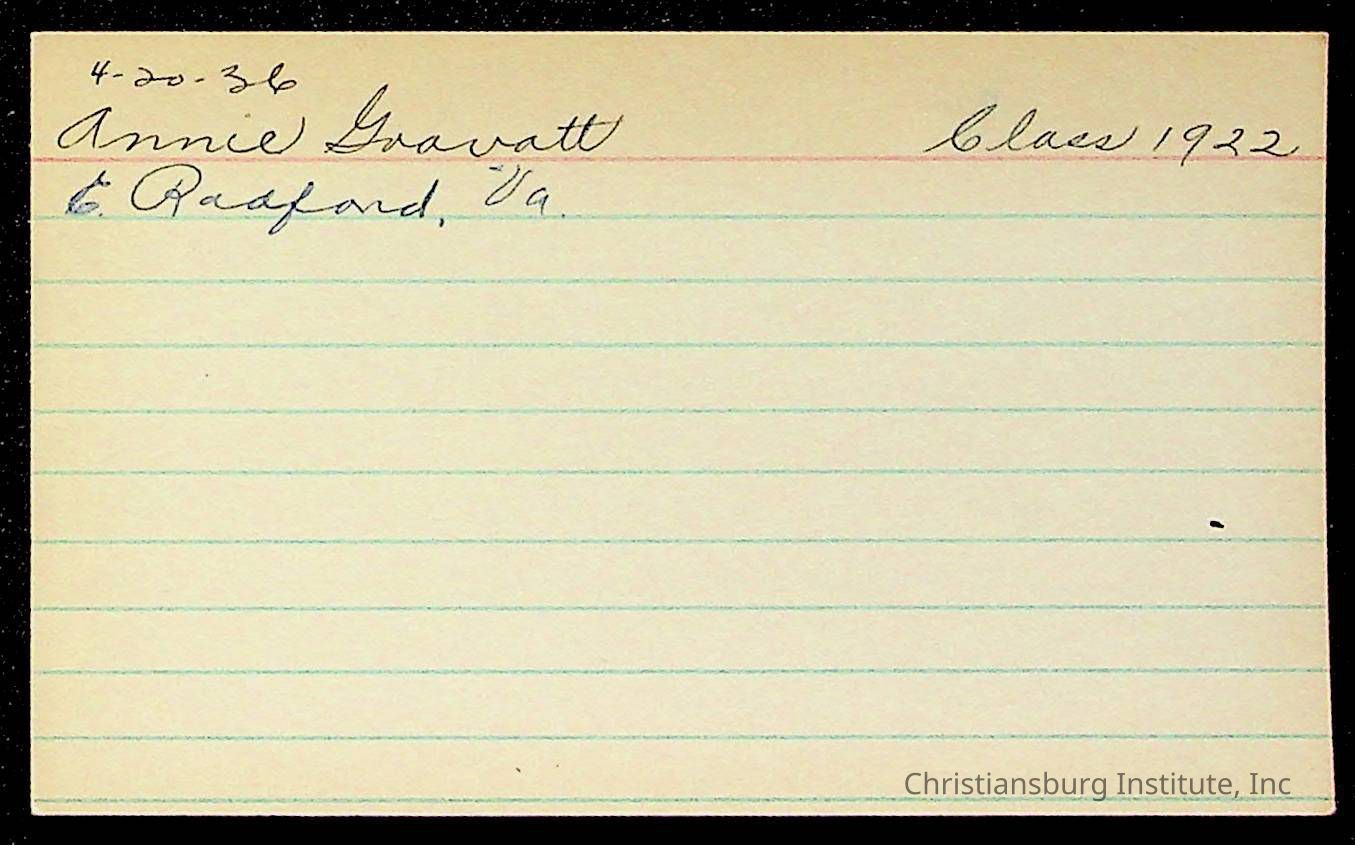 4-20-36
Annie Gravatt Class 1922
E. Radford, Va.
Christiansburg Institute, Inc